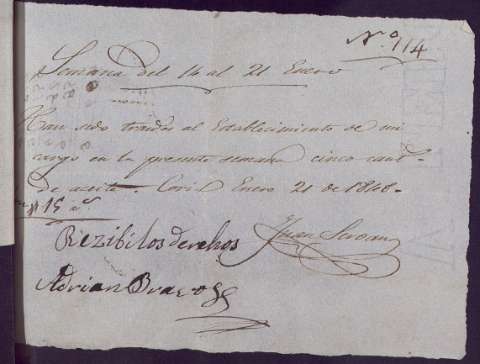 N.º 114
Semana del 14 al 21 Enero
Han sido traidas al Establecimiento de mi
cargo en la presente semana cinco cant.s
de aceite. Enero 21 de 1848.
15
Rezibi los derechos
Juan
Adrian Bravo